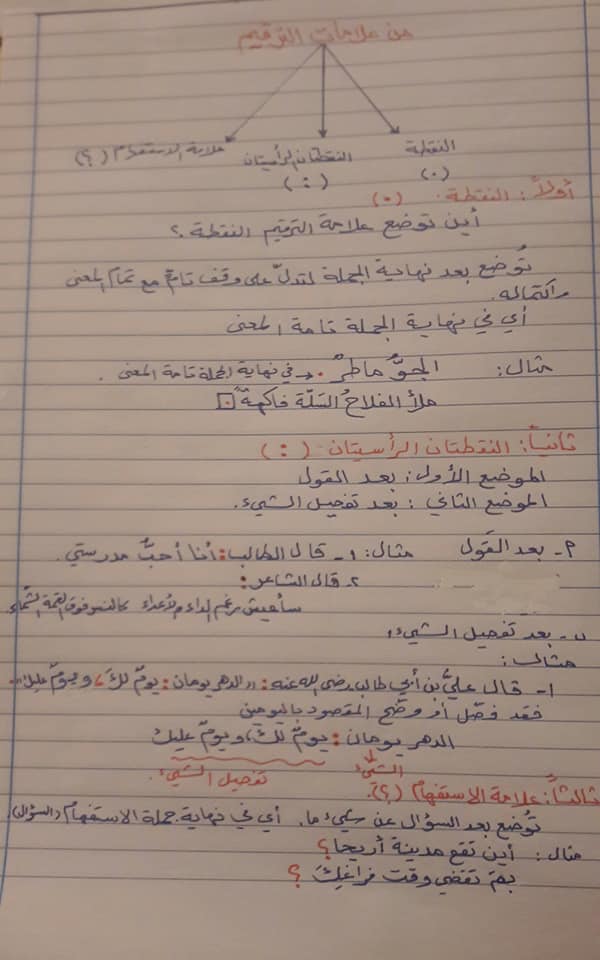 من علامات الترقيم
النقطة النقطتان الرأسيتان علامة الاستفهام (؟)
(.) (:)
أولاً: النقطة (.)
أين توضع علامة الترقيم النقطة .؟
تُوضع بعد نهاية الجملة لتدلّ على وقف تام مع تمام المعنى
واكتماله.
أي في نهاية الجملة تامة المعنى
مثال: الجوُّ ماطرٌ . في نهاية الجملة تامة المعنى .
ملأ الفلاحُ السَلّة فاكهةً .
ثانياً: النقطتان الرأسيتان (:)
الموضع الأول: بعد القول
الموضع الثاني : بعد تفصيل الشيء.
أ- بعد القَول مثال: ١- قال الطالب: أنا أحبُّ مدرستي.
٢- قال الشاعر:
سأعيش رغم الداء والأعداء كالنسر فوق القمة الشمّاء.
ب- بعد تفصيل الشيء:
مثال:
١- قال عليُّ بن أبي طالب رضي الله عنه: "الدهر يومان: يومٌ لكَ، ويومٌ عليك".
فقد فصّل أو وضّح المقصود باليومين
الدهر يومان: يومٌ لكَ، ويومٌ عليك
الشيء تفصيل الشيء.
ثالثاً: علامة الاستفهام (؟).
تُوضع بعد السؤال عن شيء ما. أي في نهاية جملة الاستفهام (السؤال)
مثال: أين تقع مدينة أريحا؟
بمَ تقضي وقت فراغِكَ ؟